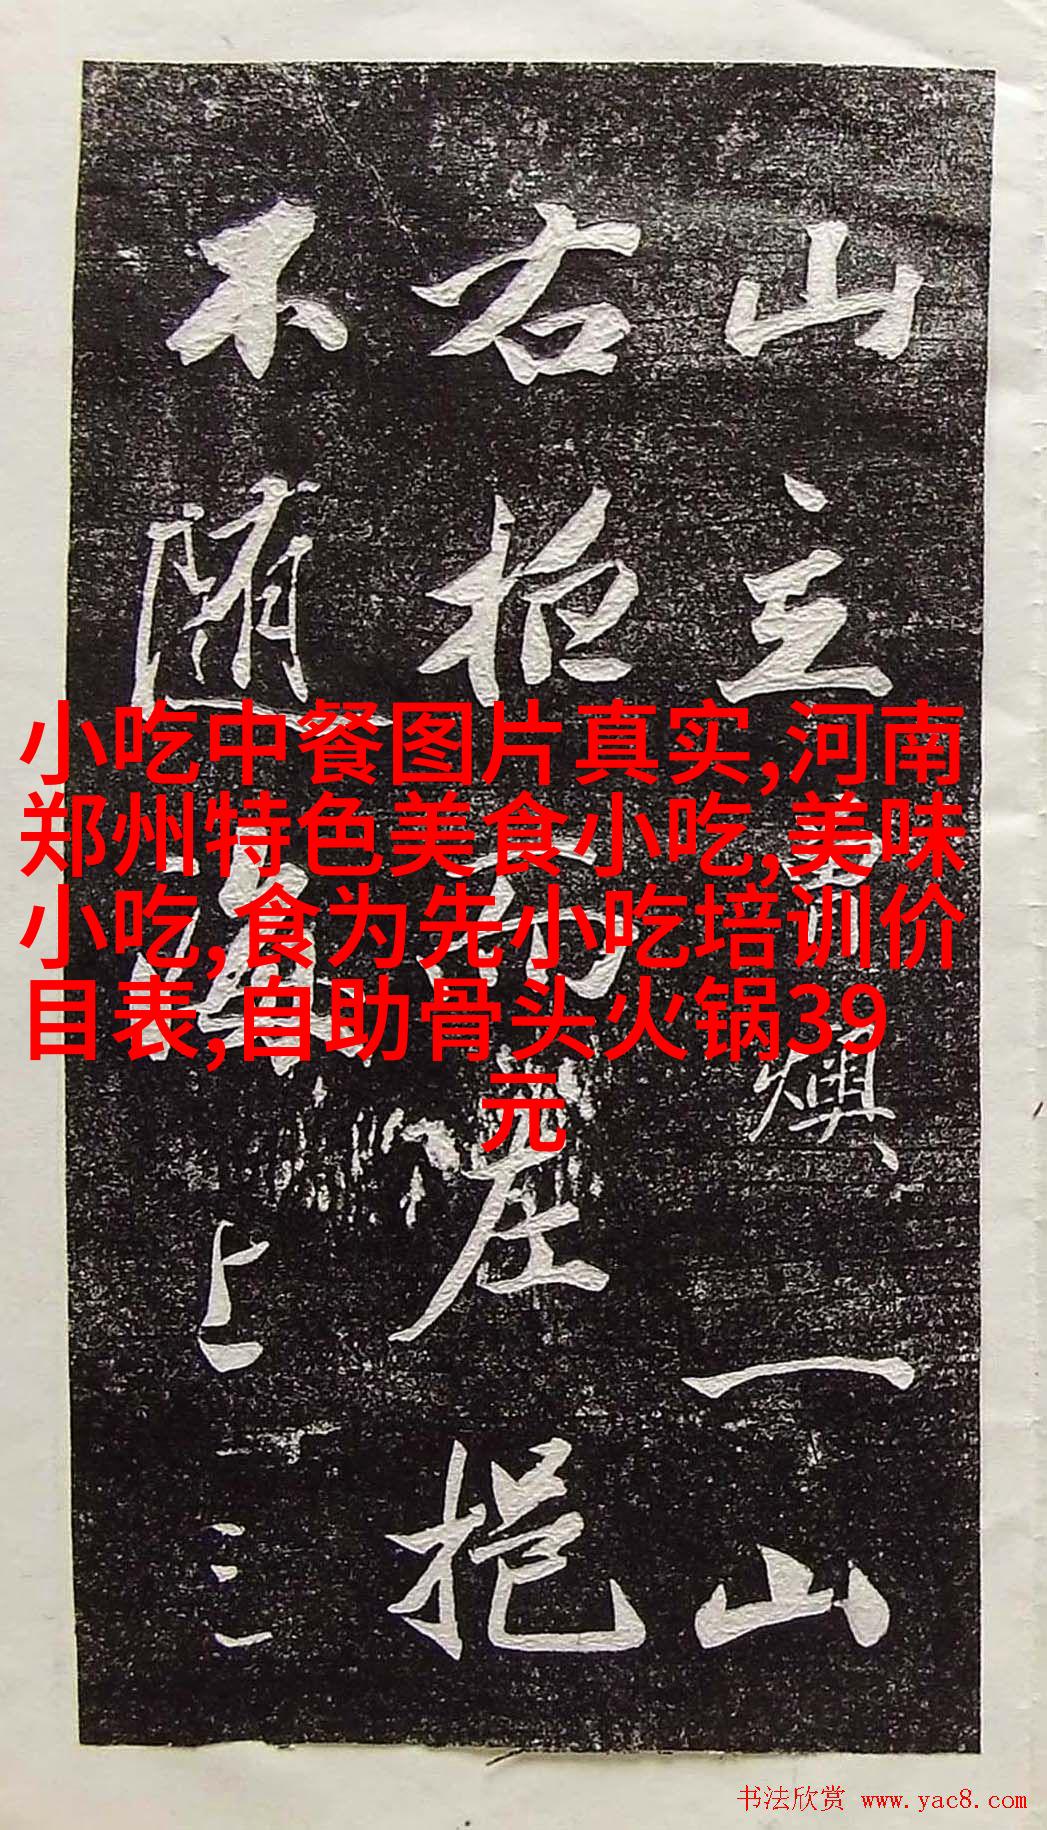 山主燠、一山
右而左挹
不随上三
小吃中餐图片真实,河南
郑州特色美食小吃,美味
小吃,食为先小吃培训价
目表,自助骨头火锅39
元
书法欣赏 www.yac8.com